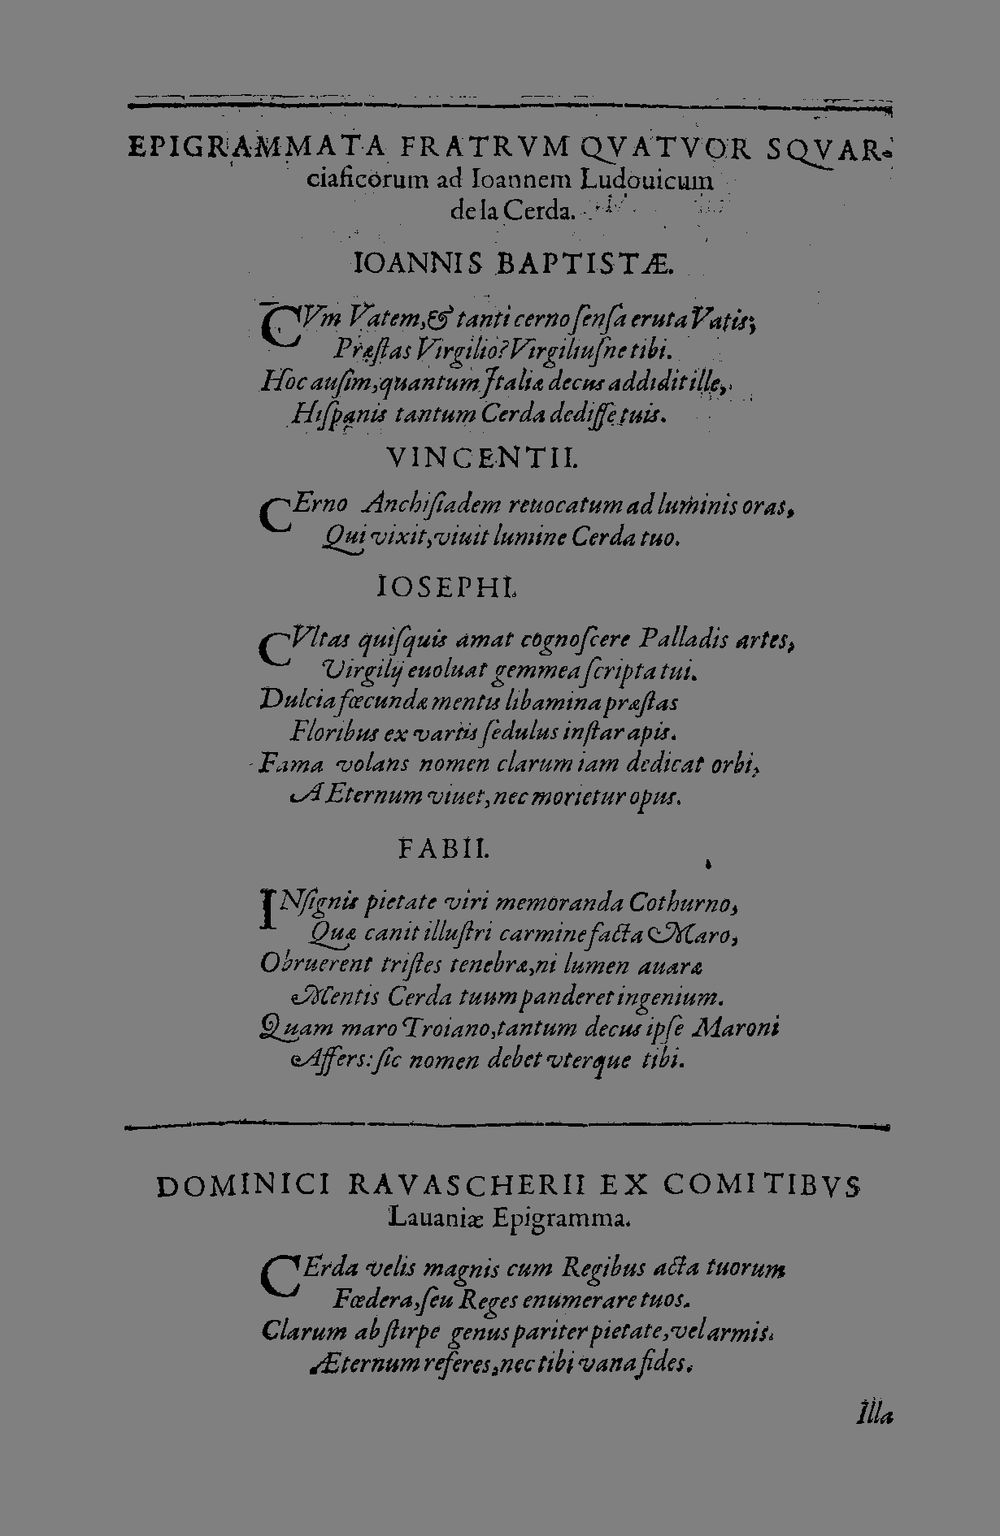 EPIGRAMMATA FRATRVM QVATVOR SQVAR-
ciaficorum ad Ioannem Ludouicum
de la Cerda.
IOANNIS BAPTISTÆ.
CVm Vatem, & tanti cerno ſenſa eruta Vatis;
Præſtas Virgilio? Virgiliuſne tibi.
Hoc auſim, quantum Italiæ decus addidit ille,
Hiſpanis tantum Cerda dediſſe tuis.
VINCENTII.
CErno Anchiſiadem reuocatum ad luminis oras,
Qui vixit, viuit lumine Cerda tuo.
IOSEPHI.
CVltas quiſquis amat cognoſcere Palladis artes,
Virgilij euoluat gemmea ſcripta tui.
Dulcia fœcundæ mentis libamina præſtas
Floribus ex variis ſedulus inſtar apis.
Fama volans nomen clarum iam dedicat orbi,
AEternum viuet, nec morietur opus.
FABII.
INſignis pietate viri memoranda Cothurno,
Quæ canit illuſtri carmine facta Maro,
Obruerent triſtes tenebræ, ni lumen auaræ
Mentis Cerda tuum panderet ingenium.
Quam maro Troiano, tantum decus ipſe Maroni
Affers: ſic nomen debet vterque tibi.
DOMINICI RAVASCHERII EX COMITIBVS
Lauaniæ Epigramma.
CErda velis magnis cum Regibus acta tuorum
Fœdera, ſeu Reges enumerare tuos.
Clarum ab ſtirpe genus pariter pietate, vel armis.
Æternum referes, nec tibi vana fides.
Illa